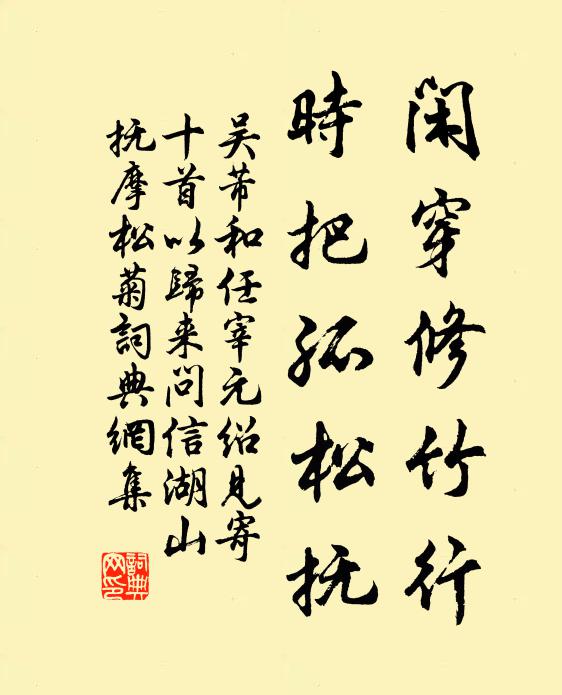 闲穿修竹行
時把孤松抚
吴芾和任宰元绍见寄
十首以歸来问信湖山
抚摩松菊詞典網集
詞典
网印